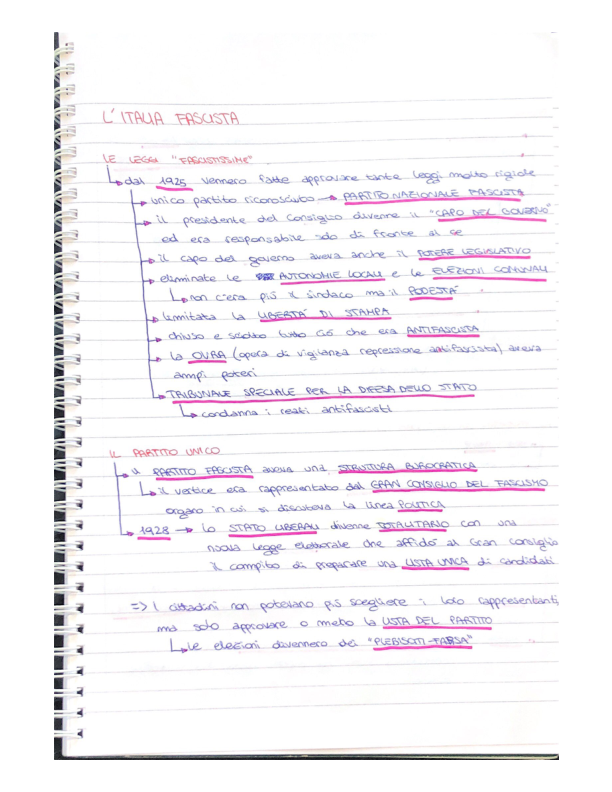 L'ITALIA FASCISTA
LE LEGGI "FASCISTISSIME"
dal 1925 vennero fatte approvare tante leggi molto rigide
unico partito riconosciuto → PARTITO NAZIONALE FASCISTA
il presidente del consiglio divenne il "CAPO DEL GOVERNO"
ed era responsabile solo di fronte al re
il capo del governo aveva anche il POTERE LEGISLATIVO
eliminate le AUTONOMIE LOCALI e le ELEZIONI COMUNALI
non c'era più il sindaco ma il PODESTÀ
limitata la LIBERTÀ DI STAMPA
chiuso e sciolto tutto ciò che era ANTIFASCISTA
la OVRA (opera di vigilanza repressione antifascista) aveva
ampi poteri
TRIBUNALE SPECIALE PER LA DIFESA DELLO STATO
condanna i reati antifascisti
IL PARTITO UNICO
il PARTITO FASCISTA aveva una STRUTTURA BUROCRATICA
il vertice era rappresentato dal GRAN CONSIGLIO DEL FASCISMO
organo in cui si discuteva la linea POLITICA
1928 → Lo STATO LIBERALE divenne TOTALITARIO con una
nuova legge elettorale che affidò al Gran Consiglio
il compito di preparare una LISTA UNICA di candidati
=> I cittadini non potevano più scegliere i loro rappresentanti,
ma solo approvare o meno la LISTA DEL PARTITO
Le elezioni divennero dei "PLEBISCITI-FARSA"